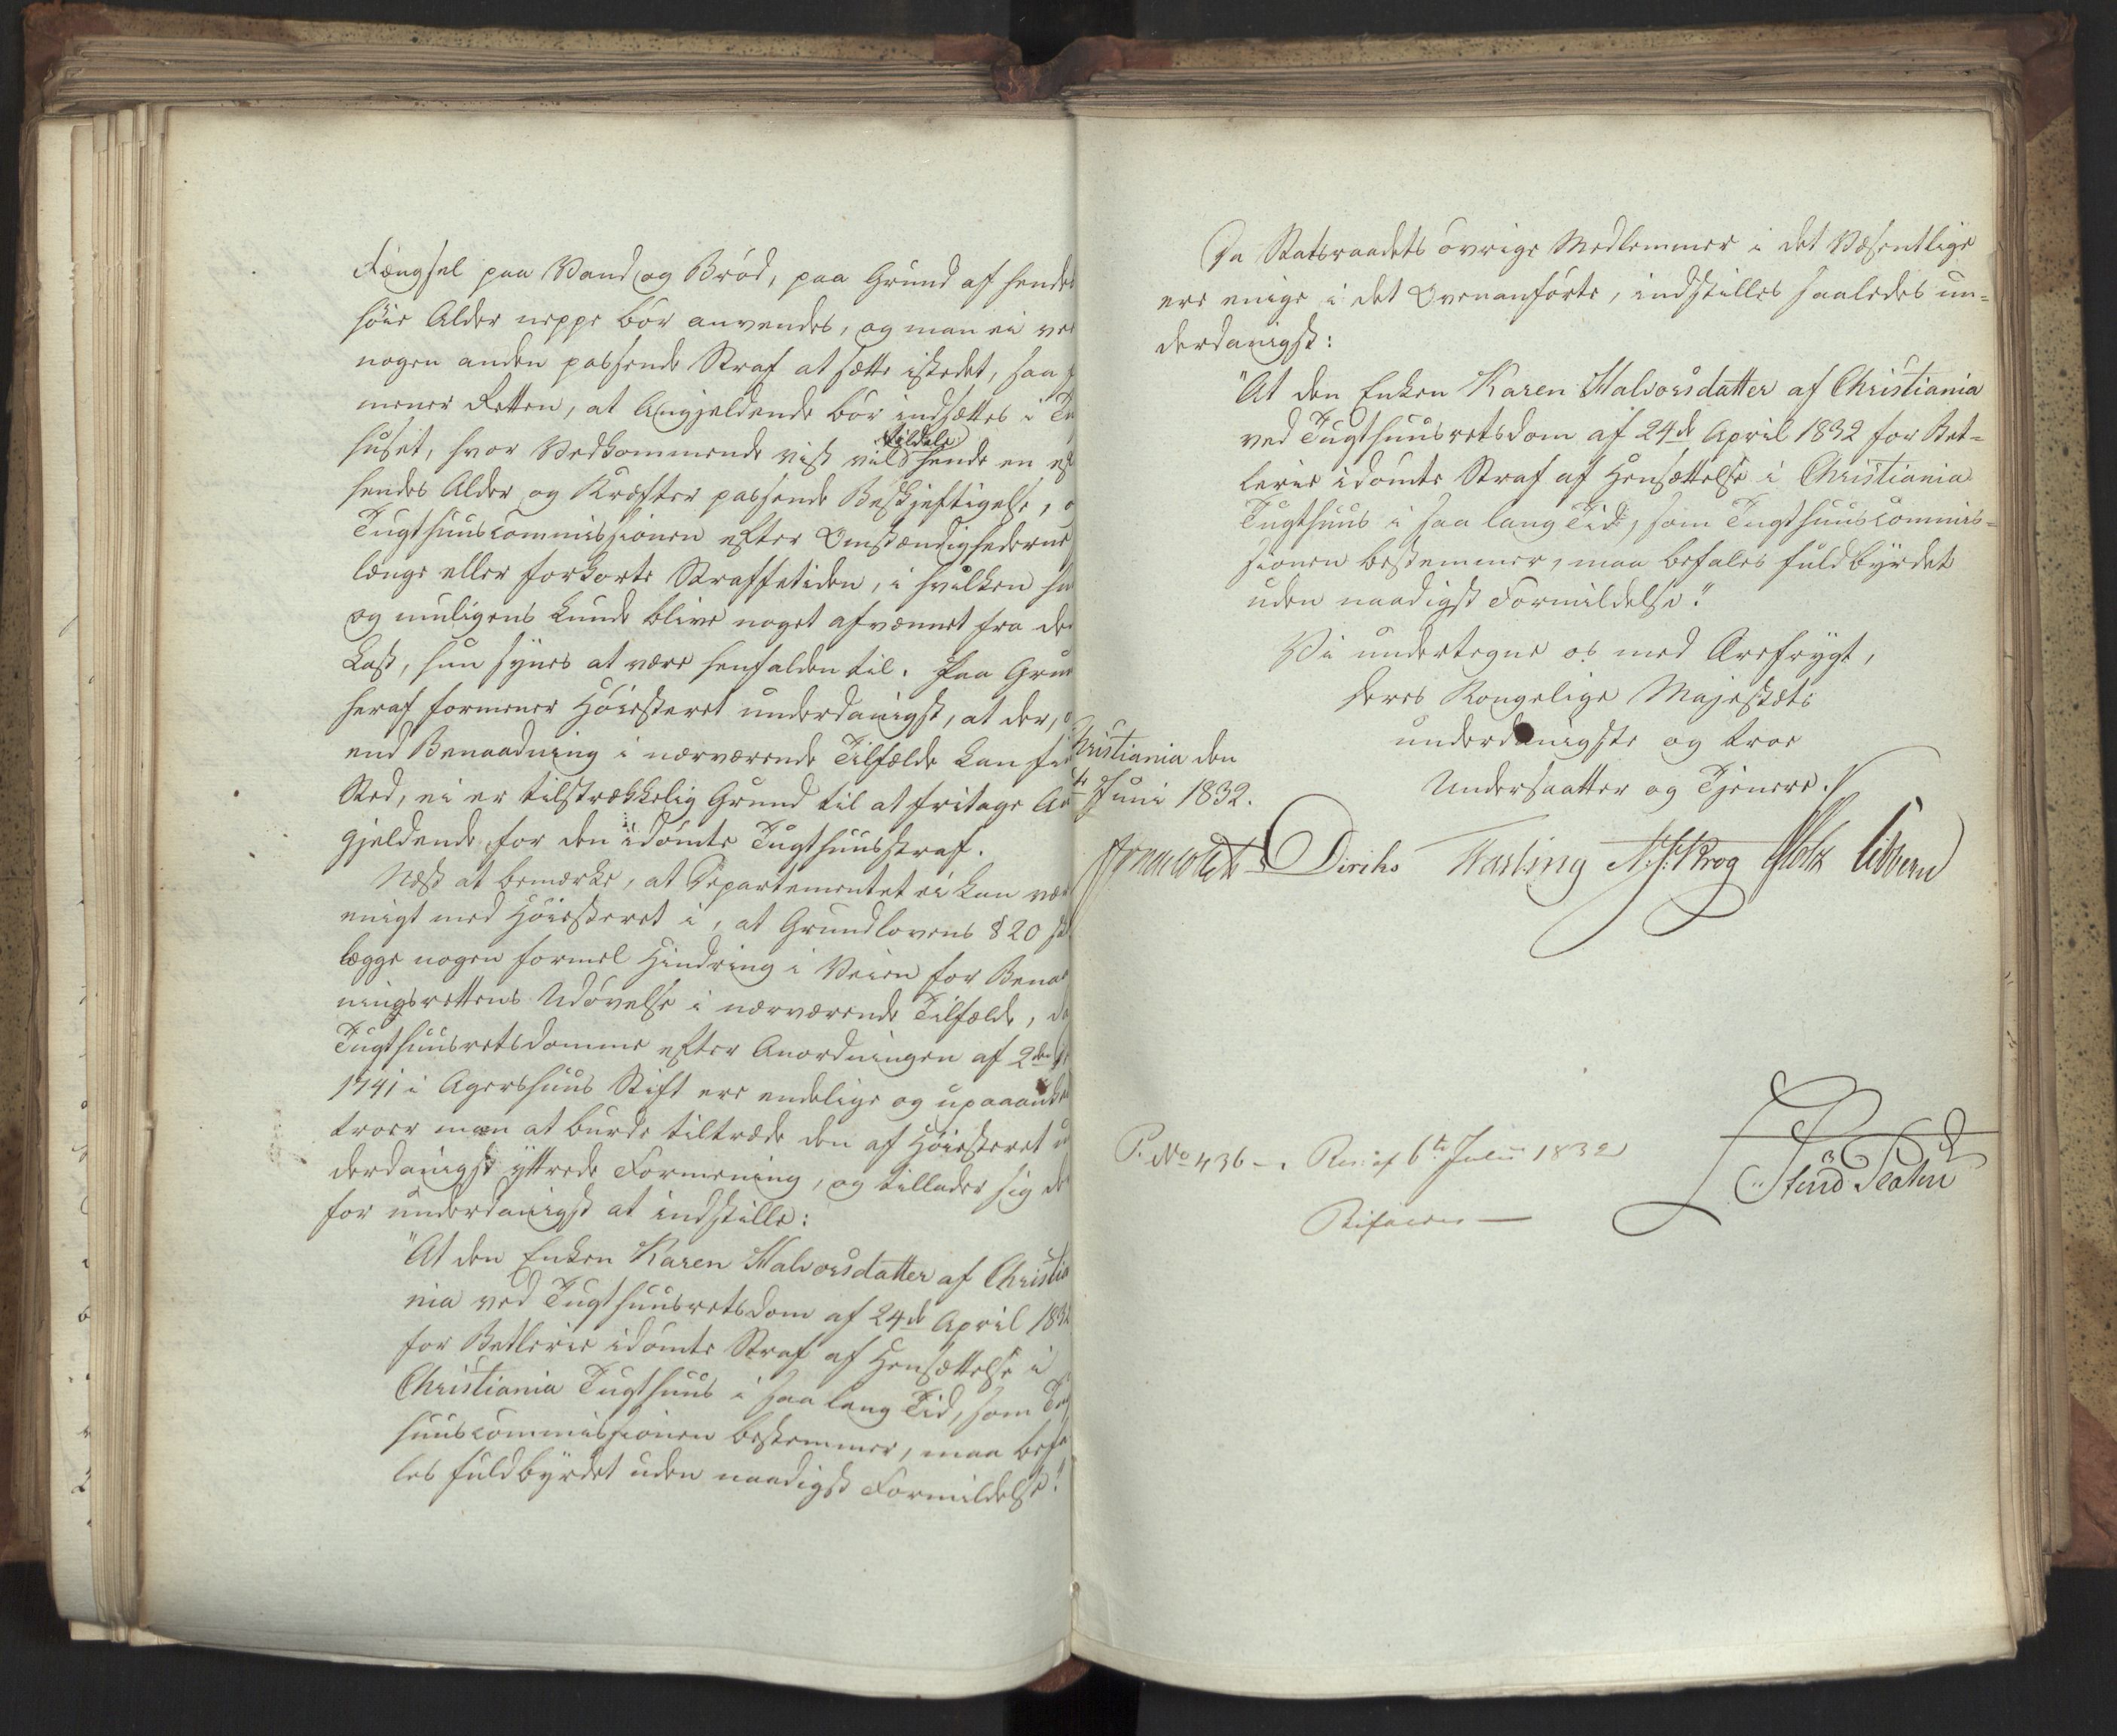 Fængsel paa Vand og Brød, paa Grund af hendes
høie Alder neppe bør anvendes, og man ei veed
nogen anden passende Straf at sætte istedet, saa
mener Retten, at Angjeldende bør indsættes i
huset, hvor Vedkommende vist vild tildele hende en
hendes Alder og Kræfter passende Beskjeftigelse,
Tugthuuscommissionen efter Omstændighederne
længe eller forkorte Straffetiden, i hvilken hun
og muligens kunde blive noget afvænnet fra den
Last, hun synes at være henfalden til. Paa Grund
heraf formener Høiesteret underdanigst, at der,
end Benaadning i nærværende Tilfælde kan finde
Sted, ei er tilstrækkelig Grund til at fritage An
gjeldende for den idømte Tugthuusstraf.
Næst at bemærke, at Departementet ei kan være
enigt med Høiesteret i, at Grundlovens § 20
lægge nogen formel Hindring i Veien for Benaad
ningsrettens Udøvelse i nærværende Tilfælde, da
Tugthuusretsdomme efter Anordningen af 2den
1741 i Agershuus Stift ere endelige og upaaankede
troer man at burde tiltræde den af Høiesteret un
derdanigst yttrede Formening, og tillader sig der
for underdanigst at indstille:
"At den Enken Karen Halvorsdatter af Christia
nia ved Tugthuusretsdom af 24de April 1832
for Betlerie idømte Straf af Hensættelse i
Christiania Tugthuus i saa lang Tid, som Tugt
huuscommissionen bestemmer, maa befa
les fuldbyrdet uden naadigst Formildelse."
Da Statsraadets øvrige Medlemmer i det Væsentlige
ere enige i det Ovenanførte, indstilles saaledes un=
derdanigst:
"At den Enken Karen Halvorsdatter af Christiania
ved Tugthuusretsdom af 24de April 1832 for Bet=
lerie idømte Straf af Hensættelse i Christiania
Tugthuus i saa lang Tid, som Tugthuuscommis=
sionen bestemmer, maa befales fuldbyrdet
uden naadigst Formildelse."
Vi undertegne os med Ærefrygt,
Deres Kongelige Majestæts
underdanigste og troe
Undersaatter og Tjenere.
hristiania den
Juni 1832.
Diriks Fasting N. J. Krog Holst Sibbern
P. No 436 _ . Res: af 6te Julii 1832
Bifaldes —